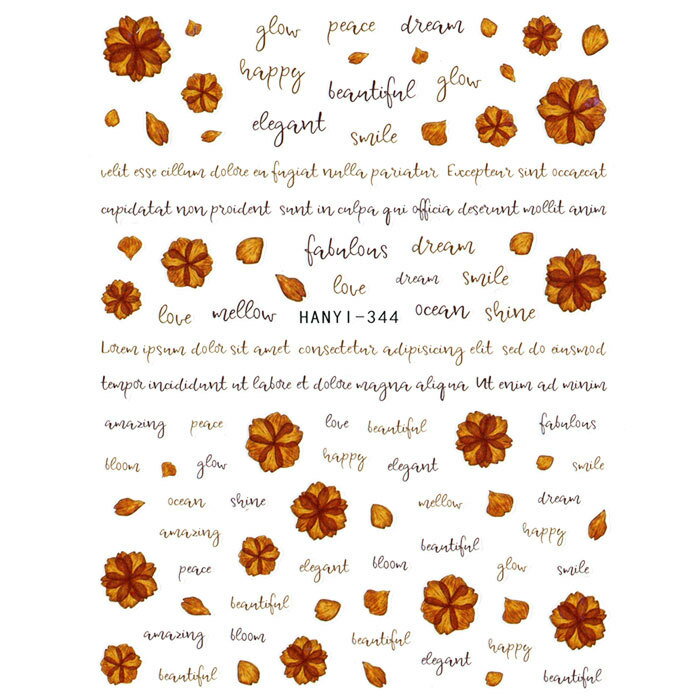 glow peace dream
happy beautiful glow
elegant smile
velit esse cillum dolore eu fugiat nulla pariatur Excepteur sint occaecat
cupidatat non proident sunt in culpa qui officia deserunt mollit anim
fabulous dream
love dream smile
love mellow HANYI-344 ocean shine
Lorem ipsum dolor sit amet consectetur adipisicing elit sed do eiusmod
tempor incididunt ut labore et dolore magna aliqua Ut enim ad minim
amazing peace love beautiful fabulous
bloom glow happy elegant smile
ocean shine mellow dream
amazing beautiful happy
peace elegant bloom glow smile
beautiful
amazing bloom beautiful happy
beautiful elegant beautiful